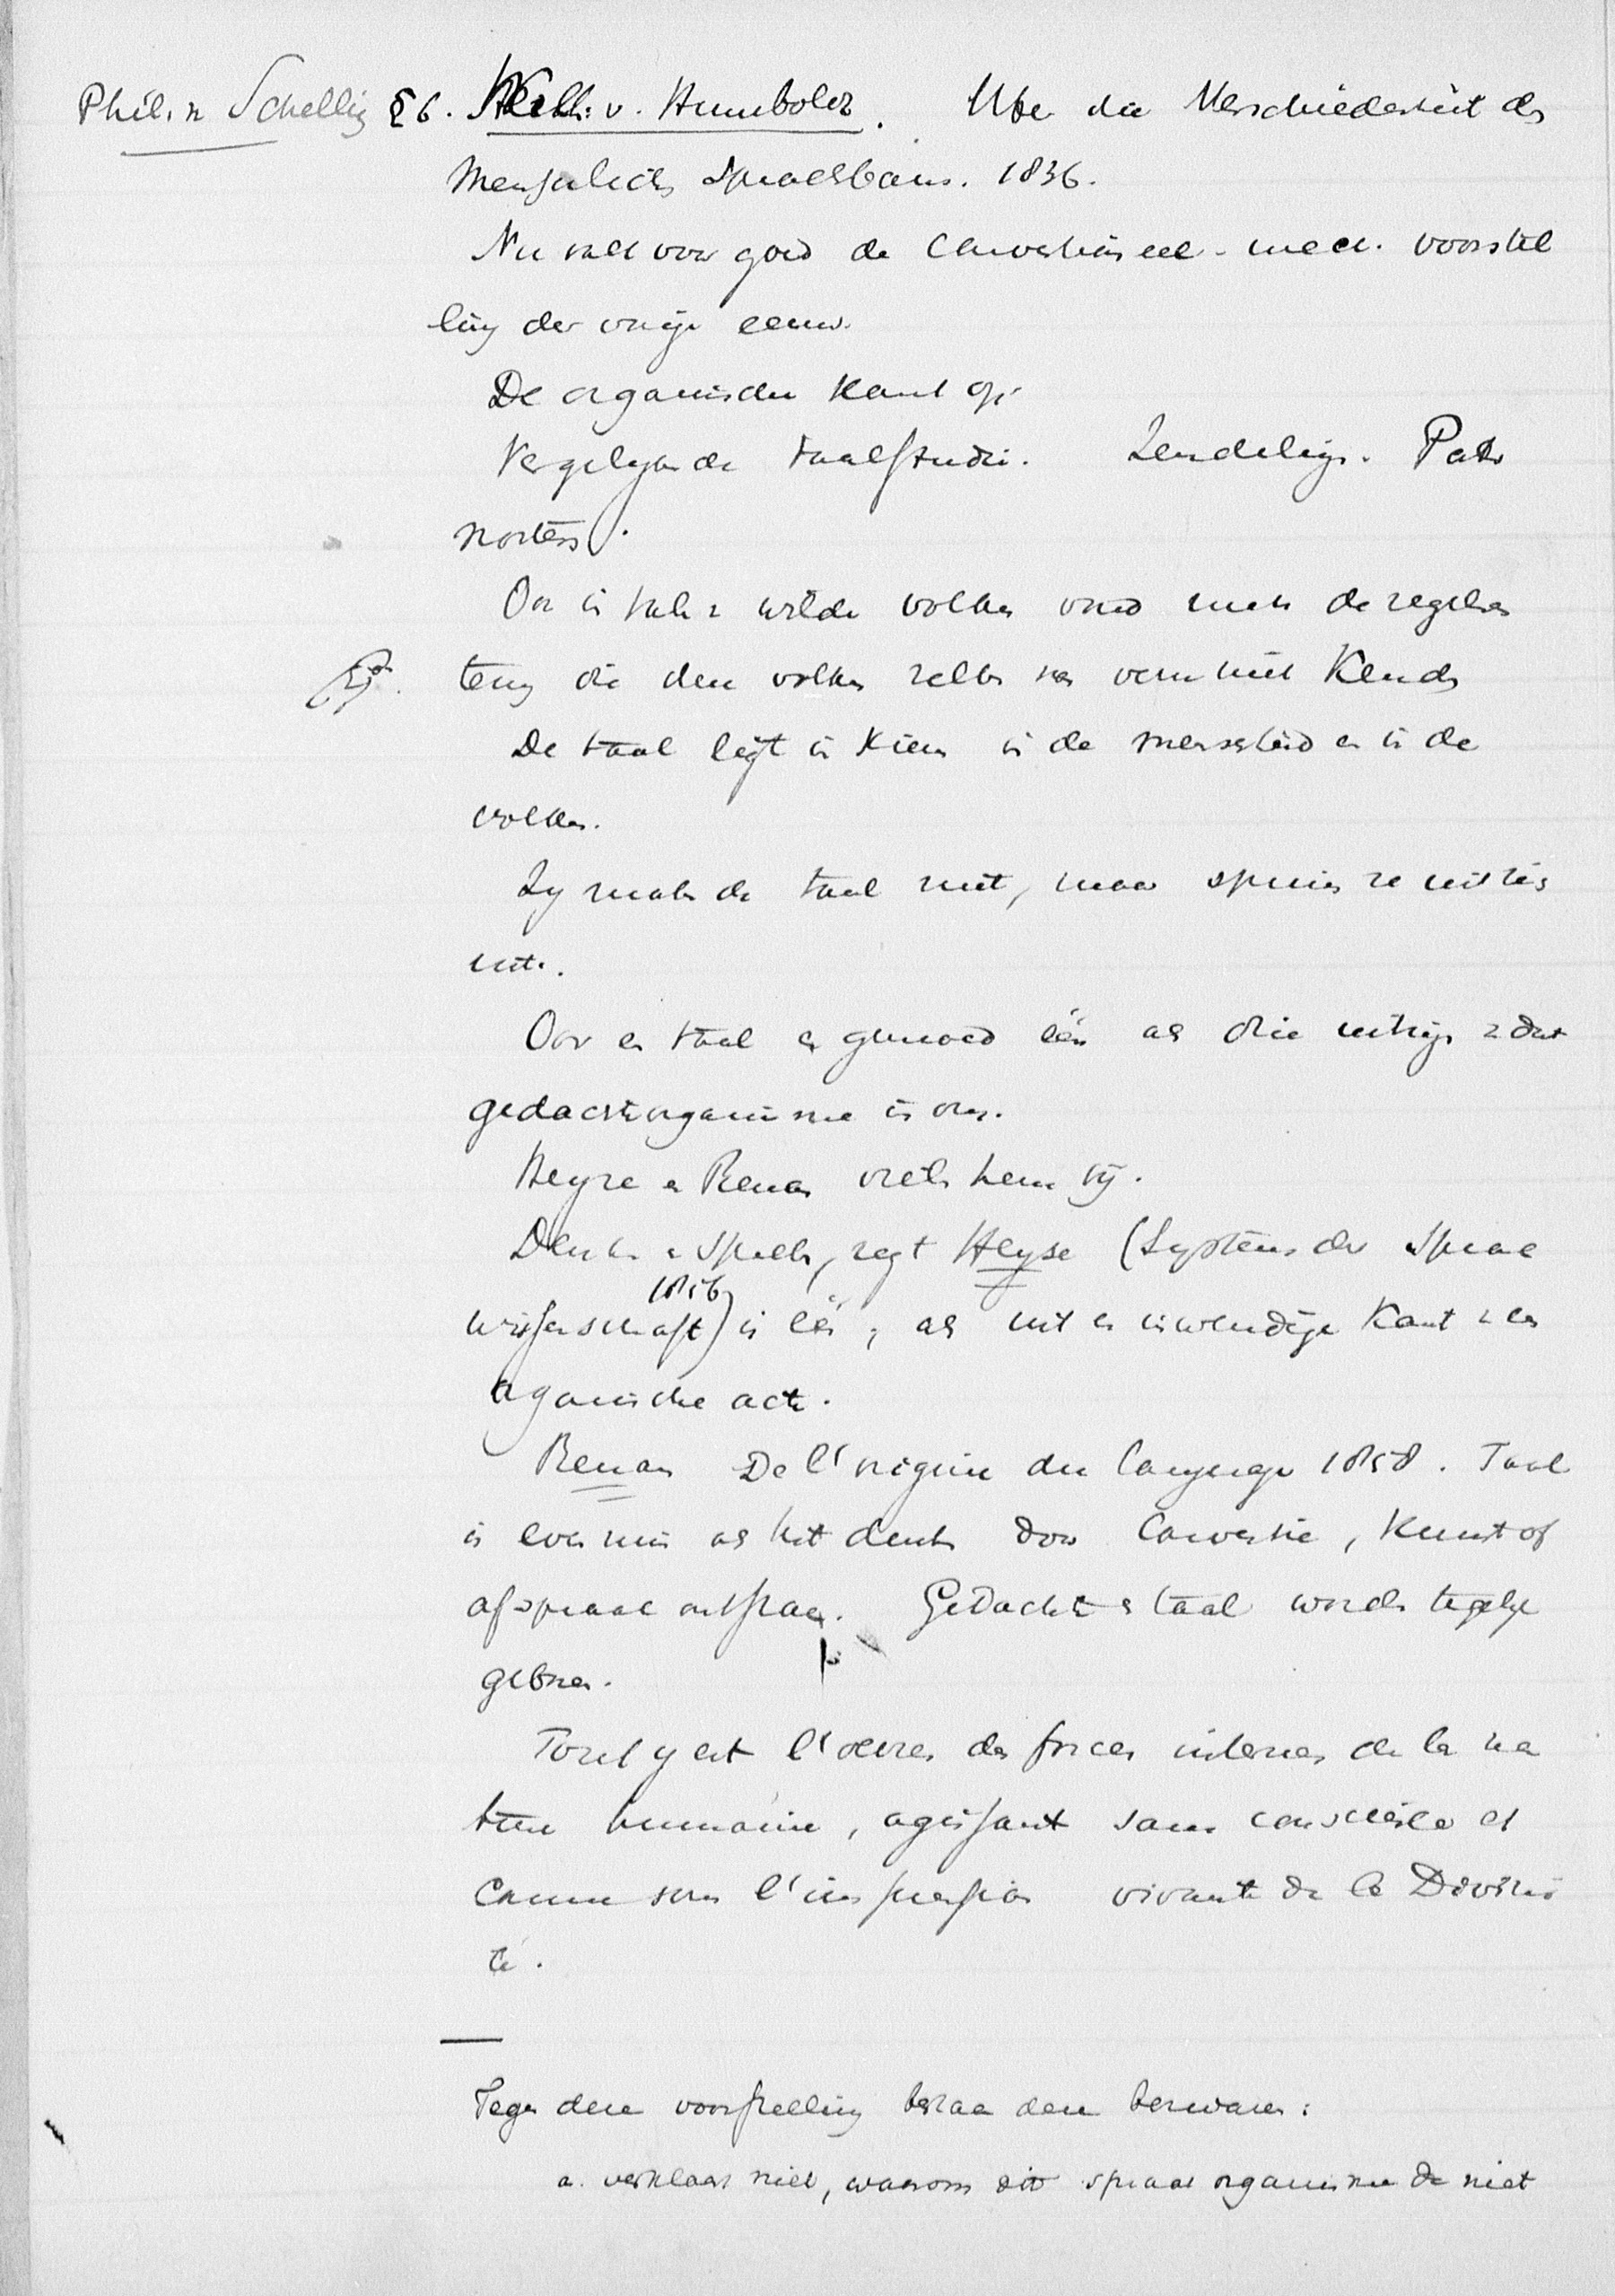 Phil. v. Schelling § 6. Wilh. v. Humboldt. Ube die Verschiedenheit des
Menschlichen Sprachbaus. 1836.
Nu valt voor goed de mech. voorstel
ling der vorige eeuw.
De organische kant op.
Vergelijkende taalstudie. Zendeling. Pater
nosters.
Ook in talen v wilde volken vond men de regels
die den volken zelve niet kenden
De taal ligt in kiem in de menschheid en in de
volken.
Zy maken de taal niet, maar spinnen ze uit zich
uit.
Ook en taal en gemoed één als drie v dat
gedachtorganisme in ons.
Heyse en Renan vielen hem bij.
Denken en spreken, zegt Heyse (System der Sprac
wissenschaft 1856) is één, als uit en inwendige kant v een
organische acte.
Renan De l'origine du langage 1858. Taal
is evenmin als het denken door conventie, kunst of
afspraac ontstaan. Gedachte en taal worden tegelijk
geboren.
Tout y est l'oeuvre des forces internes de la na
ture humaine, agissant sans conscience et
comme sous l'inspiration vivante de la Divini
té.
Tegen deze voorstelling bestaan deze bezwaren:
a. verklaart niet, waarom dit spraakorganisme de niet